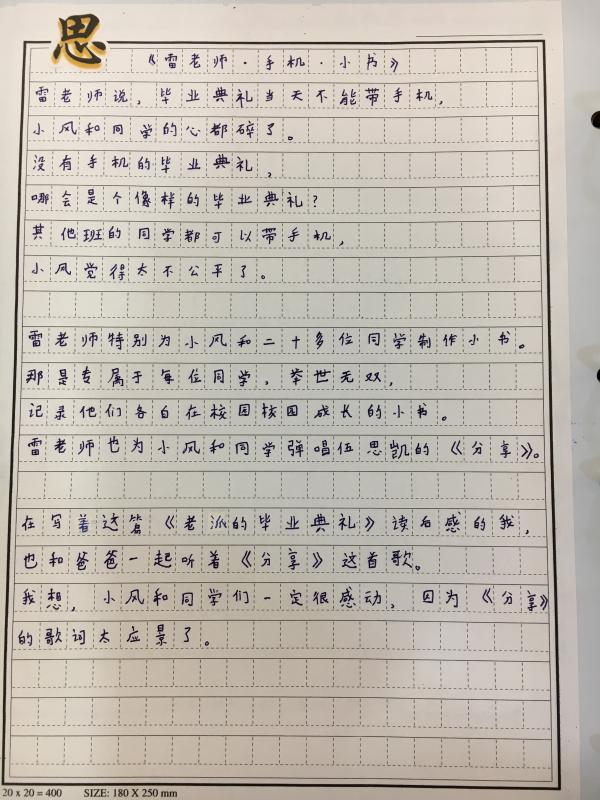 思
《雷老师·手机·小书》
雷老师说，毕业典礼当天不能带手机，
小风和同学的心都碎了。
没有手机的毕业典礼，
哪会是个像样的毕业典礼？
其他班的同学都可以带手机，
小风觉得太不公平了。
雷老师特别为小风和二十多位同学制作小书。
那是专属于每位同学，举世无双，
记录他们各自在校园校园成长的小书。
雷老师也为小风和同学弹唱伍思凯的《分享》。
在写着这篇《老派的毕业典礼》读后感的我，
也和爸爸一起听着《分享》这首歌。
我想，小风和同学们一定很感动，因为《分享》
的歌词太应景了。
20 x 20 = 400 SIZE: 180 X 250 mm